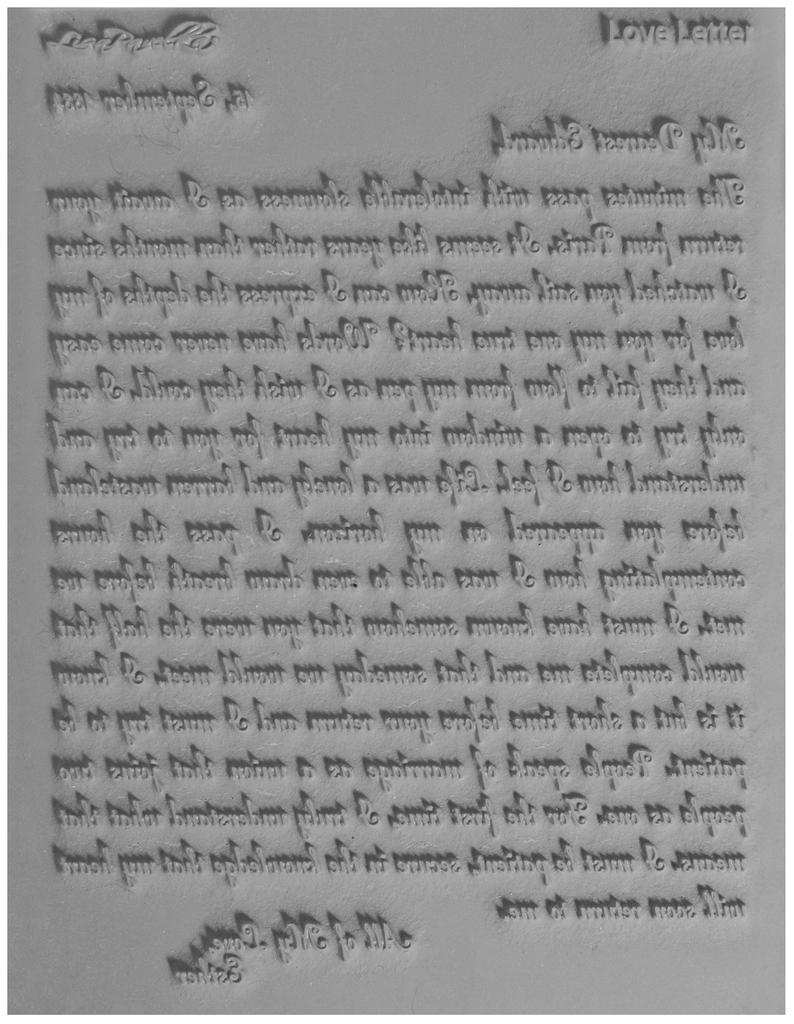 Love Letter
15, September 1882
My Dearest Edward,
The minutes pass with intolerable slowness as I await your
return from Paris. It seems like years rather than months since
I watched you sail away. How can I express the depths of my
love for you my one true heart? Words have never come easy
and they fail to flow from my pen as I wish they could. I can
only try to open a window into my heart for you to try and
understand how I feel. Life was a lonely and barren wasteland
before you appeared on my horizon. I pass the hours
contemplating how I was able to even draw breath before we
met. I must have known somehow that you were the half that
would complete me and that someday we would meet. I know
it is but a short time before your return and I must try to be
patient. People speak of marriage as a union that joins two
people as one. For the first time, I truly understand what that
means. I must be patient, secure in the knowledge that my heart
will soon return to me.
All of My Love,
Esther